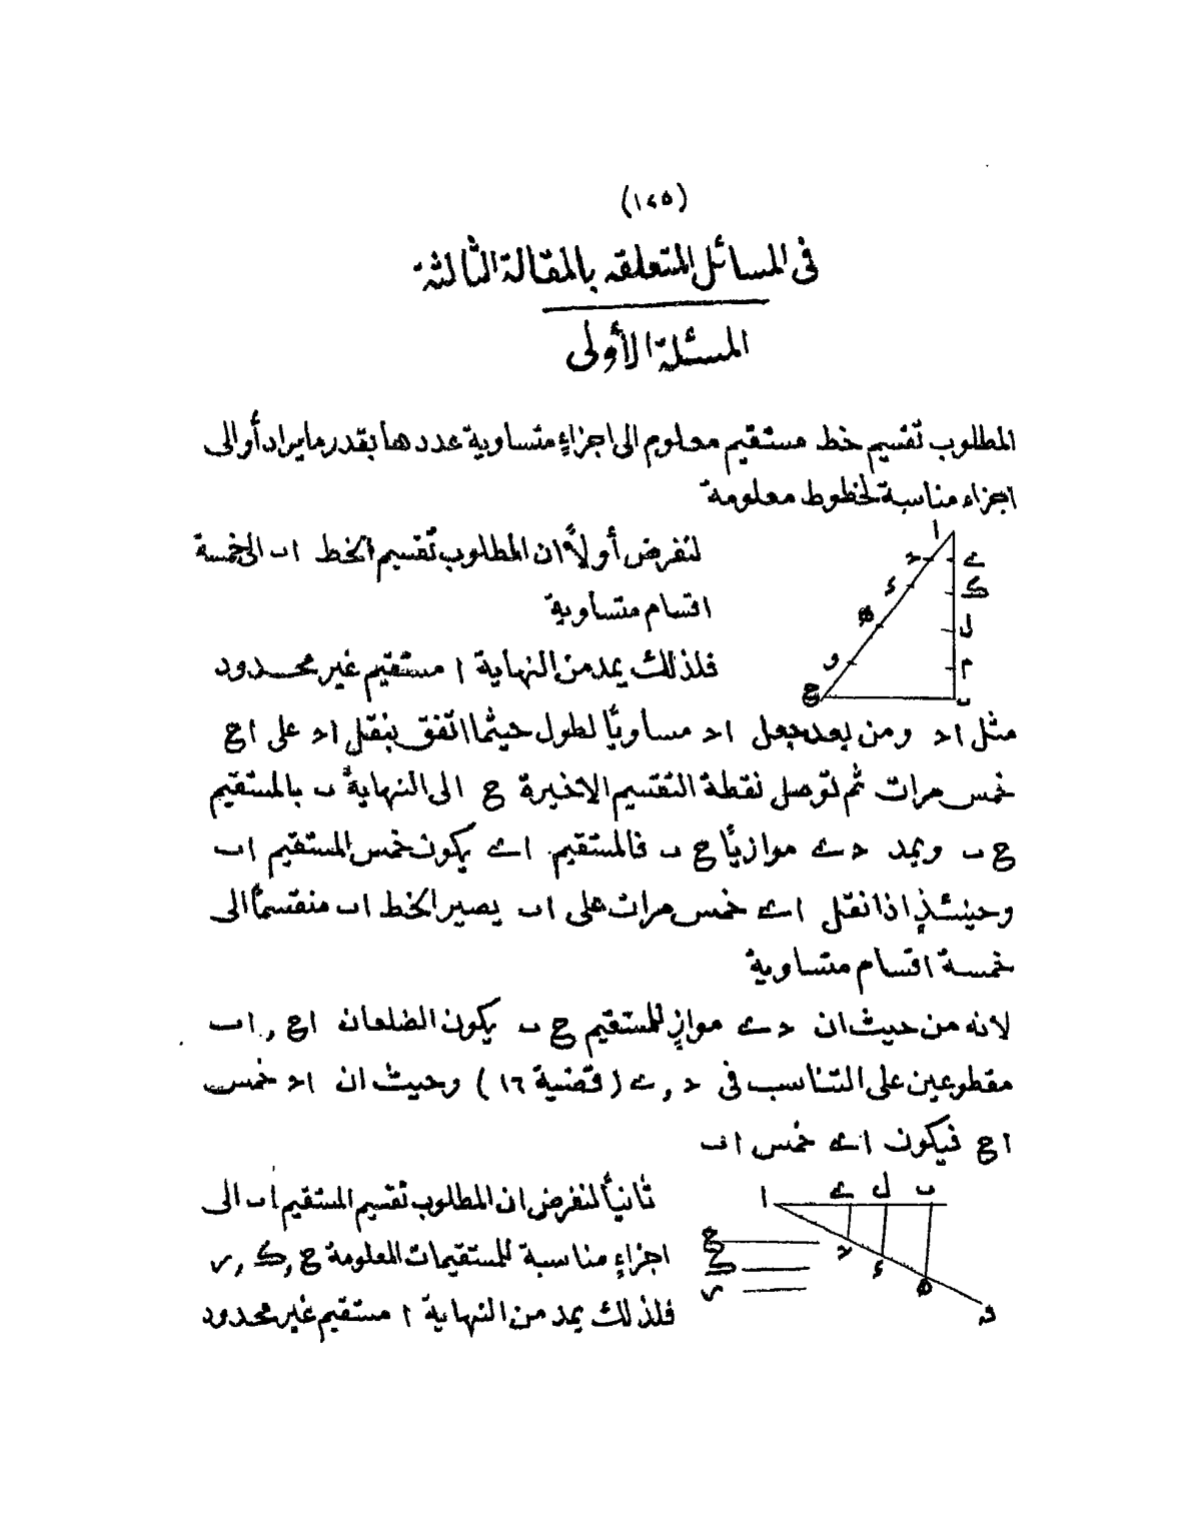 (١٤٥)
فى المسائل المتعلقه بالمقالة الثالثة
المسئلة الأولى
المطلوب تقسيم خط مستقيم معلوم الى اجزاءٍ متساوية عددها بقدر مايراد أوالى
اجزاء مناسبة لخطوط معلومة
لنفرض أولاً ان المطلوب تقسيم الخط اب الى خمسة
اقسام متساوية
فلذلك يمد من النهاية ا مستقيم غير محدود
مثل اد ومن بعد يجعل اد مساويًا لطول حيثما اتفق بنقل اد على اج
خمس مرات ثم توصل نقطة التقسيم الاخيرة ج الى النهاية ب بالمستقيم
ج ب ويمد د ے موازيًا ج ب فالمستقيم اے يكون خمس المستقيم اب
وحينئذٍ اذا نقل اے خمس مرات على اب يصير الخط اب منقسمًا الى
خمسة اقسام متساوية
لانه من حيث ان د ے موازٍ للمستقيم ج ب يكون الضلعان اج , اب
مقطوعين على التناسب فى د , ے ( قضية ١٦ ) وحيث ان اد خمس
اج فيكون اے خمس اب
ثانيًا لنفرض ان المطلوب تقسيم المستقيم اب الى
اجزاءٍ مناسبة للمستقيمات المعلومة ح , ك , ر
فلذلك يمد من النهاية ا مستقيم غير محدود
ا
د ے
ء ك
ه ل
و م
ج ب
ا ے ل ب
ح
ك
ر
د ء ه ف